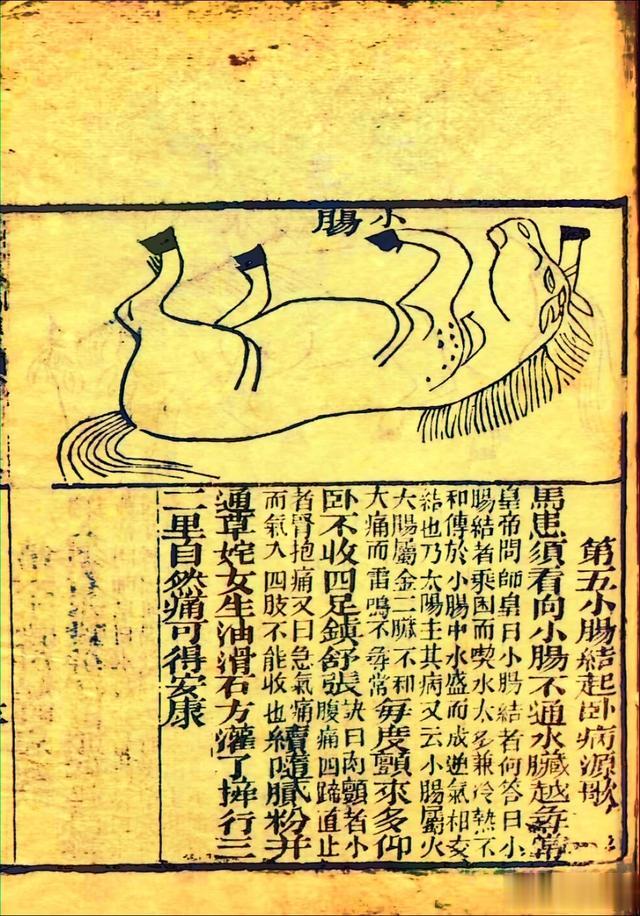 小腸
第五小腸結起卧病源歌
馬患須看向小腸不通水臟越尋常
皇帝問師皇曰小腸結者何答曰小
腸結者乘困而喫水太多兼冷熱不
和傳於小腸中水盛而成逆氣相交
結也乃太陽主其病又云小腸屬火
大腸屬金二臟不和
大痛而雷鳴不尋常
每度顫來多仰
卧不收四足鎮舒張
訣曰肉顫者小
腹痛四蹄直止
者腎抱痛又曰急氣痛
而氣入四肢不能收也
續隨膩粉并
通草姹女生油滑石方灌了行三
二里自然痛可得安康